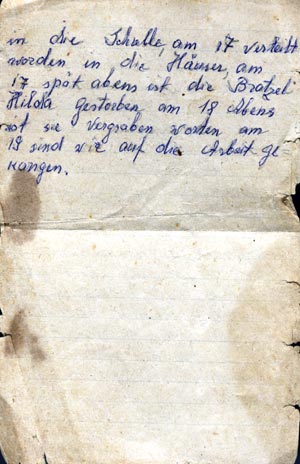 in die Schulle, am 17 verteilt
worden in die Häuser, am
17 spät abens ist die Bratzel
Hilda gestorben am 18 Abens
ist sie vergraben worden am
19 sind wir auf die Arbeit ge
kangen.